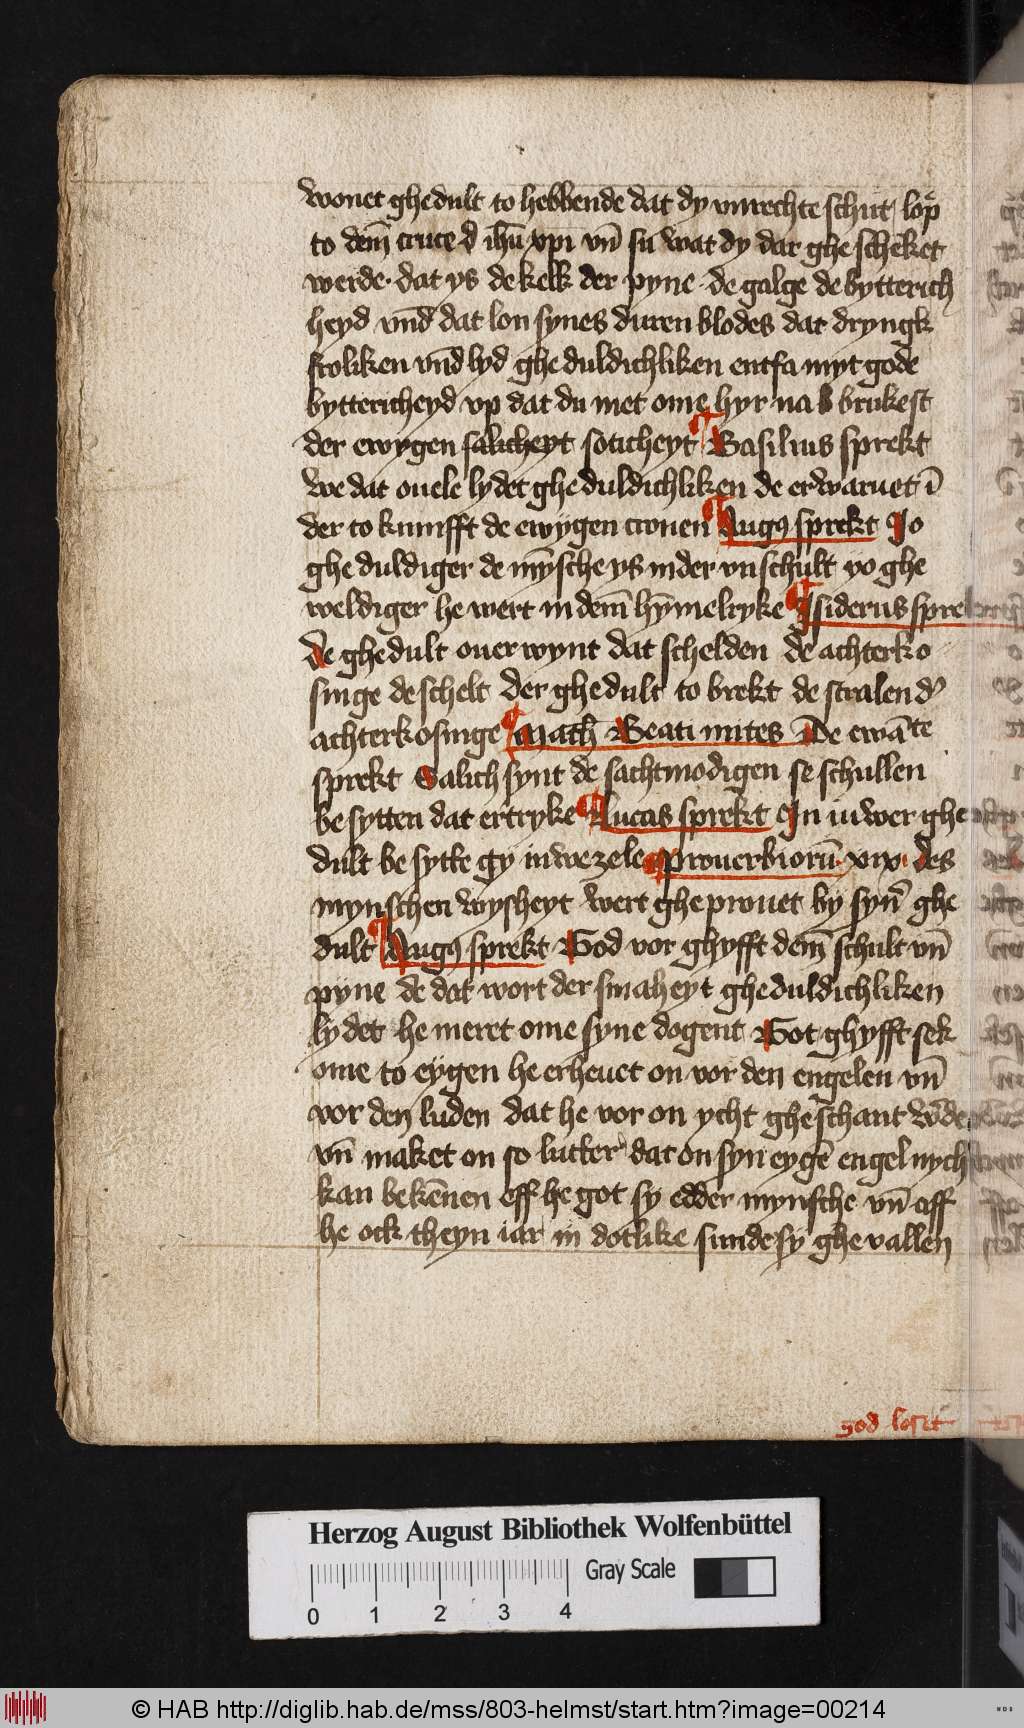 wonet ghedult to hebbende dat dy vnrechte schut lop
to dem̄ cruce d ihū xpī vn̄ su wat dy dar ghe schēket
werde · dat ys de kelk der pyne · de galge de bytterich
heyd vn̄d dat lon synes duren blodes dat dryngk
froliken vn̄d lyd ghe duldichliken entfa myt gode
bytterichheyd vp dat du met ome hyr na brukest
der ewygen salicheyt soticheyt ¶ Basilius sprekt
we dat ouele lydet ghe duldichliken de erwaruet ī
der to kumfft de ewygen cronen ¶ Augꝰ sprekt Jo
ghe duldiger de mȳsche ys in der vnschult yo ghe
weldiger he wert in dem̄ hȳmelryke ¶ Isiderus
de ghedult ouer wynt dat schelden de achterko
singe de schelt der ghe dult to brekt de stralen d
achterkosinge ¶ Math̄ Beati mites De ewāte
sprekt Salich synt de sachtmodigen se schullen
be sytten dat ertryke ¶ Lucas sprekt In iuwer ghe
dult be sytte gy iuwe zele ¶ prouerbiorū xix des
mynschen wysheyt wert ghe prouet by syn̄ ghe
dult ¶ Augꝰ sprekt God vor ghyfft dem̄ schult vn̄
pyne de dat wort der smaheyt gheduldichliken
lydet he meret ome syne dogent Got ghyfft sek
ome to eygen he erheuet on vor den engelen vn̄
vor den luden dat he vor on ycht ghe schant
vn̄ maket on so lutter dat on syn eygē engel nych
kan bekēnen eff he got sy edder mynsche vn̄ aff
he ock theyn iar in dotlike sunde sy ghe vallen
god
Herzog August Bibliothek Wolfenbüttel
Gray Scale
0 1 2 3 4
© HAB http://diglib.hab.de/mss/803-helmst/start.htm?image=00214